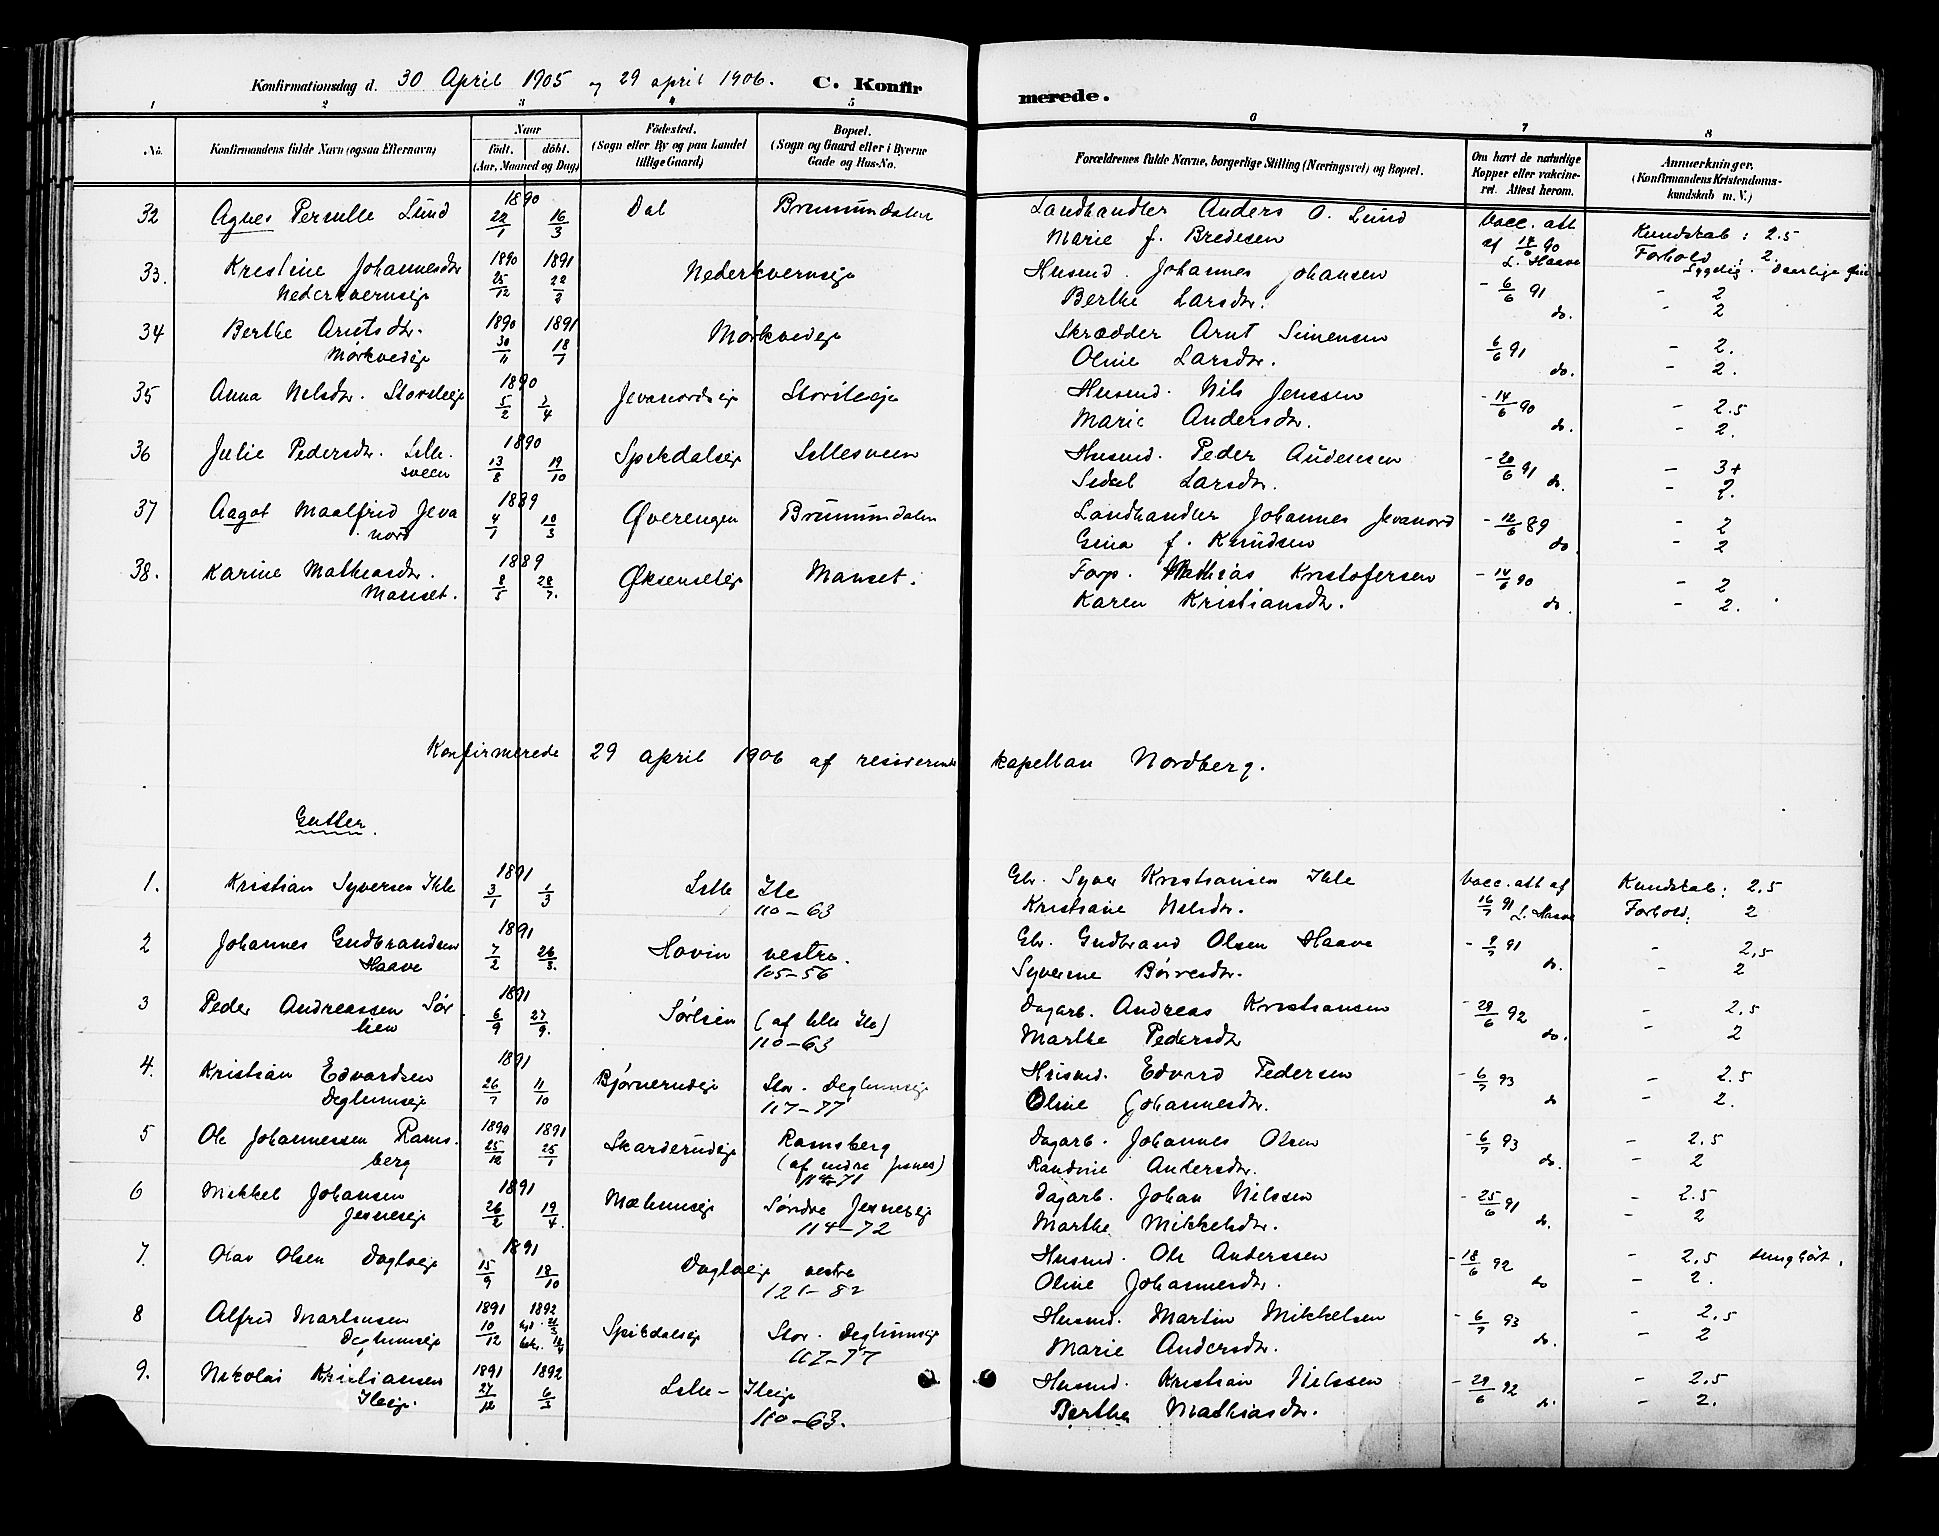 Konfirmationsdag d. 30 April 1905 og 29 april 1906. C. Konfirmerede.
1 2 3 4 5 6 7 8
No. Konfirmandens fulde Navn (ogsaa Efternavn) Naar födt. döbt. (Aar, Maaned og Dag) Födested. (Sogn eller By og paa Landet tillige Gaard) Bopæl. (Sogn og Gaard eller i Byerne Gade og Hus-No. Forældrenes fulde Navne, borgerlige Stilling (Næringsvei) og Bopæl. Om havt de naturlige Kopper eller vakcineret. Attest herom. Anmærkninger. (Konfirmandens Kristendomskundskab m. V.)
32 Agnes Pernille Lund 1890 22/1 16/3 Dal Brumunddalen Landhandler Anders O. Lund vacc. att Kundskab: 2.5
Marie f. Bredesen af 14/6 90 L. Haave Forhold: 2.
33. Kristine Johannesdtr 1890 25/12 1891 22/2 Nederkvernseje Husmd. Johannes Johansen - 6/6 91 - 2
Nederkvernseje Berthe Larsdtr. do. - 2
34 Berthe Arntsdtr. 1890 30/11 1891 18/1 Mørkvedeje Skrædder Arnt Simensen 6/6 91 - 2.
Mørkvedeje Oline Larsdtr. do. - 2.
35 Anna Nelsdtr. Storileeje 1890 5/2 7/4 Jevanordseje Storileeje Husmd. Nils Jenssen - 14/6 90 - 2.5
Marie Andersdtr. do. - 2.
36 Julie Pedersdtr. Lille- 1890 13/8 19/10 Spikdalseje Lillesveen Husmd. Peder Audensen - 20/6 91 - 3+
sveen Sidsel Larsdtr. do. - 2.
37 Aagot Maalfrid Jeva 1889 4/1 10/3 Øverengen Brumunddalen Landhandler Johannes Jevanord - 12/6 89 - 2
nord Gina f. Knudsen do. - 2
38. Karine Mathiasdtr. 1889 8/5 28/7. Øksenseteje Manset. Forp. Mathias Kristofersen - 14/6 90 - 2
Manset. Karen Kristiansdtr. do. - 2.
Konfirmerede 29 april 1906 af residerende kapellan Nordberg.
Gutter.
1. Kristian Syversen Ihle 1891 3/1 1/3 Lille Ile Gbr. Syver Kristiansen Ihle Vacc. att af Kundskab: 2.5
110-63 Kristiane Nelsdtr. 16/7 91 L. Haave Forhold: 2
2 Johannes Gudbrandsen 1891 7/2 26/3. Hovin vestre. Gbr. Gudbrand Olsen Haave - 9/7 91 - 2,5
Haave 105-56 Syverine Børresdtr. do. - 2
3 Peder Andreassen Sør 1891 6/9 27/9. Sørlien (af lille Ile) Dagarb. Andreas Kristiansen - 29/6 92 - 2,5
lien 110-63 Marthe Pedersdtr do. - 2
4. Kristian Edvardsen 1891 26/7 11/10 Bjørnerudeje Stor-Deglumseje Husmd. Edvard Pedersen - 6/7 93 - 2.5
Deglumseje 117-77 Oline Johannesdtr. do - 2.
5 Ole Johannessen Rams- 1890 25/12 1891 25/1 Skarderudeje Ramsberg Dagarb. Johannes Olsen - 6/7 93 - 2.5
berg (af nedre Jesnes) Randine Andersdtr. do. - 2
6 Mikkel Johansen 1891 26/2 19/4. Mælumseje Søndre Jesneseje Dagarb. Johan Nilssen - 25/6 91 - 2.5
Jesneseje 114-72 Marthe Mikkelsdtr. do. - 2
7. Olav Olsen Dogloeje 1891 15/9 18/10 Dogloeje vestre Husmd. Ole Anderssen - 18/6 92 - 2,5 tunghørt.
121-82 Oline Johannesdtr. do - 2.
8 Alfred Martinsen 1891 10/12 1892 Spikdalseje Stor-Deglumseje Husmd. Martin Mikkelsen - 6/7 93 - 2.5
Deglumseje 117-77 Marie Andersdtr. do. - 2
9. Nikolai Kristiansen 1891 27/12 1892 6/3 Lille-Ileeje Husmd. Kristian Nilssen - 29/6 92 - 2.5
Ileeje. 110-63. Berthe Mathiasdtr. do. - 2.